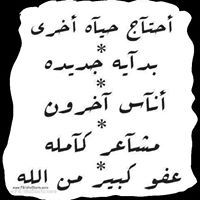 أحتآج حيآه أخرى
*
بدآيه جديده
*
أنآس آخرون
*
مشآعر كآمله
*
عفو كبير من الله